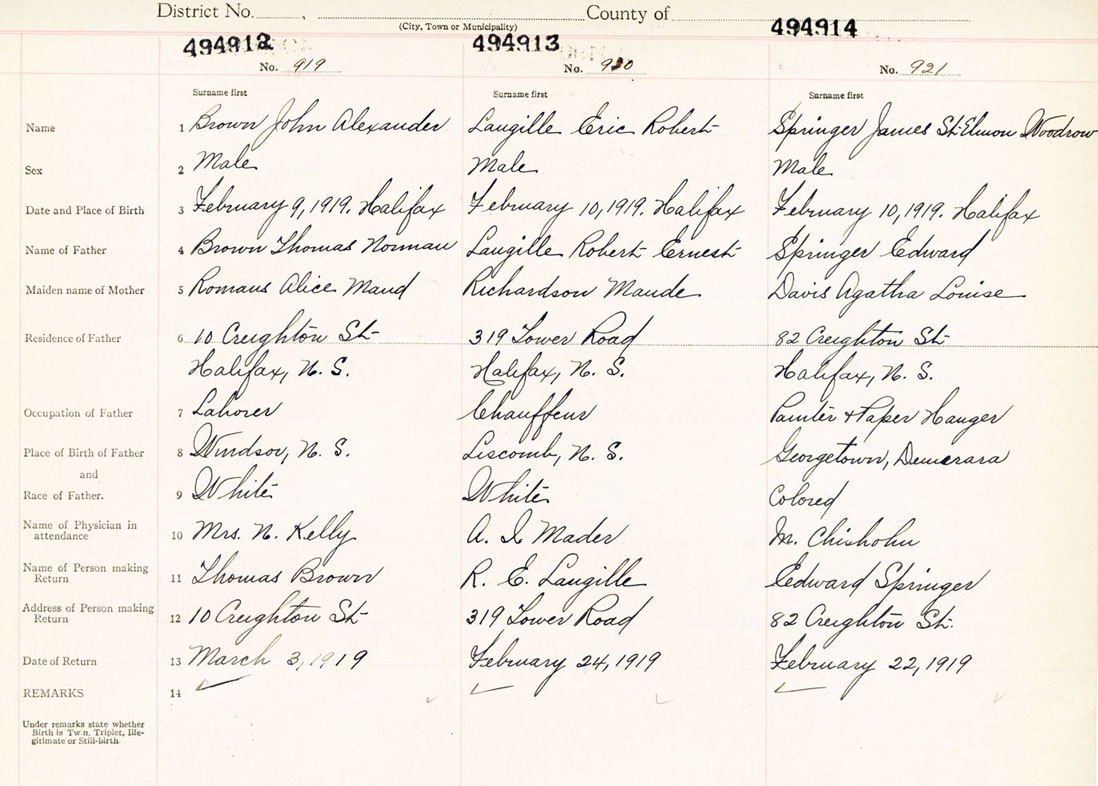 District No. , County of
(City, Town or Municipality)
494912 494913 494914
No. 919 No. 920 No. 921
Surname first Surname first Surname first
Name 1 Brown John Alexander Langille Eric Robert Springer James St. Elmon Woodrow
Sex 2 Male Male Male
Date and Place of Birth 3 February 9, 1919. Halifax February 10, 1919. Halifax February 10, 1919. Halifax
Name of Father 4 Brown Thomas Norman Langille Robert Ernest Springer Edward
Maiden name of Mother 5 Romans Alice Maud Richardson Maude Davis Agatha Louise
Residence of Father 6 10 Creighton St 319 Tower Road 82 Creighton St
Halifax, N. S. Halifax, N. S. Halifax, N. S.
Occupation of Father 7 Laborer Chauffeur Painter + Paper Hanger
Place of Birth of Father 8 Windsor, N. S. Liscomb, N. S. Georgetown, Demerara
and
Race of Father. 9 White White Colored
Name of Physician in attendance 10 Mrs. N. Kelly A. I Mader M. Chisholm
Name of Person making Return 11 Thomas Brown R. E. Langille Edward Springer
Address of Person making Return 12 10 Creighton St 319 Tower Road 82 Creighton St.
Date of Return 13 March 3, 1919 February 24, 1919 February 22, 1919
REMARKS 14
Under remarks state whether
Birth is Twin, Triplet, Ille-
gitimate or Still-birth.